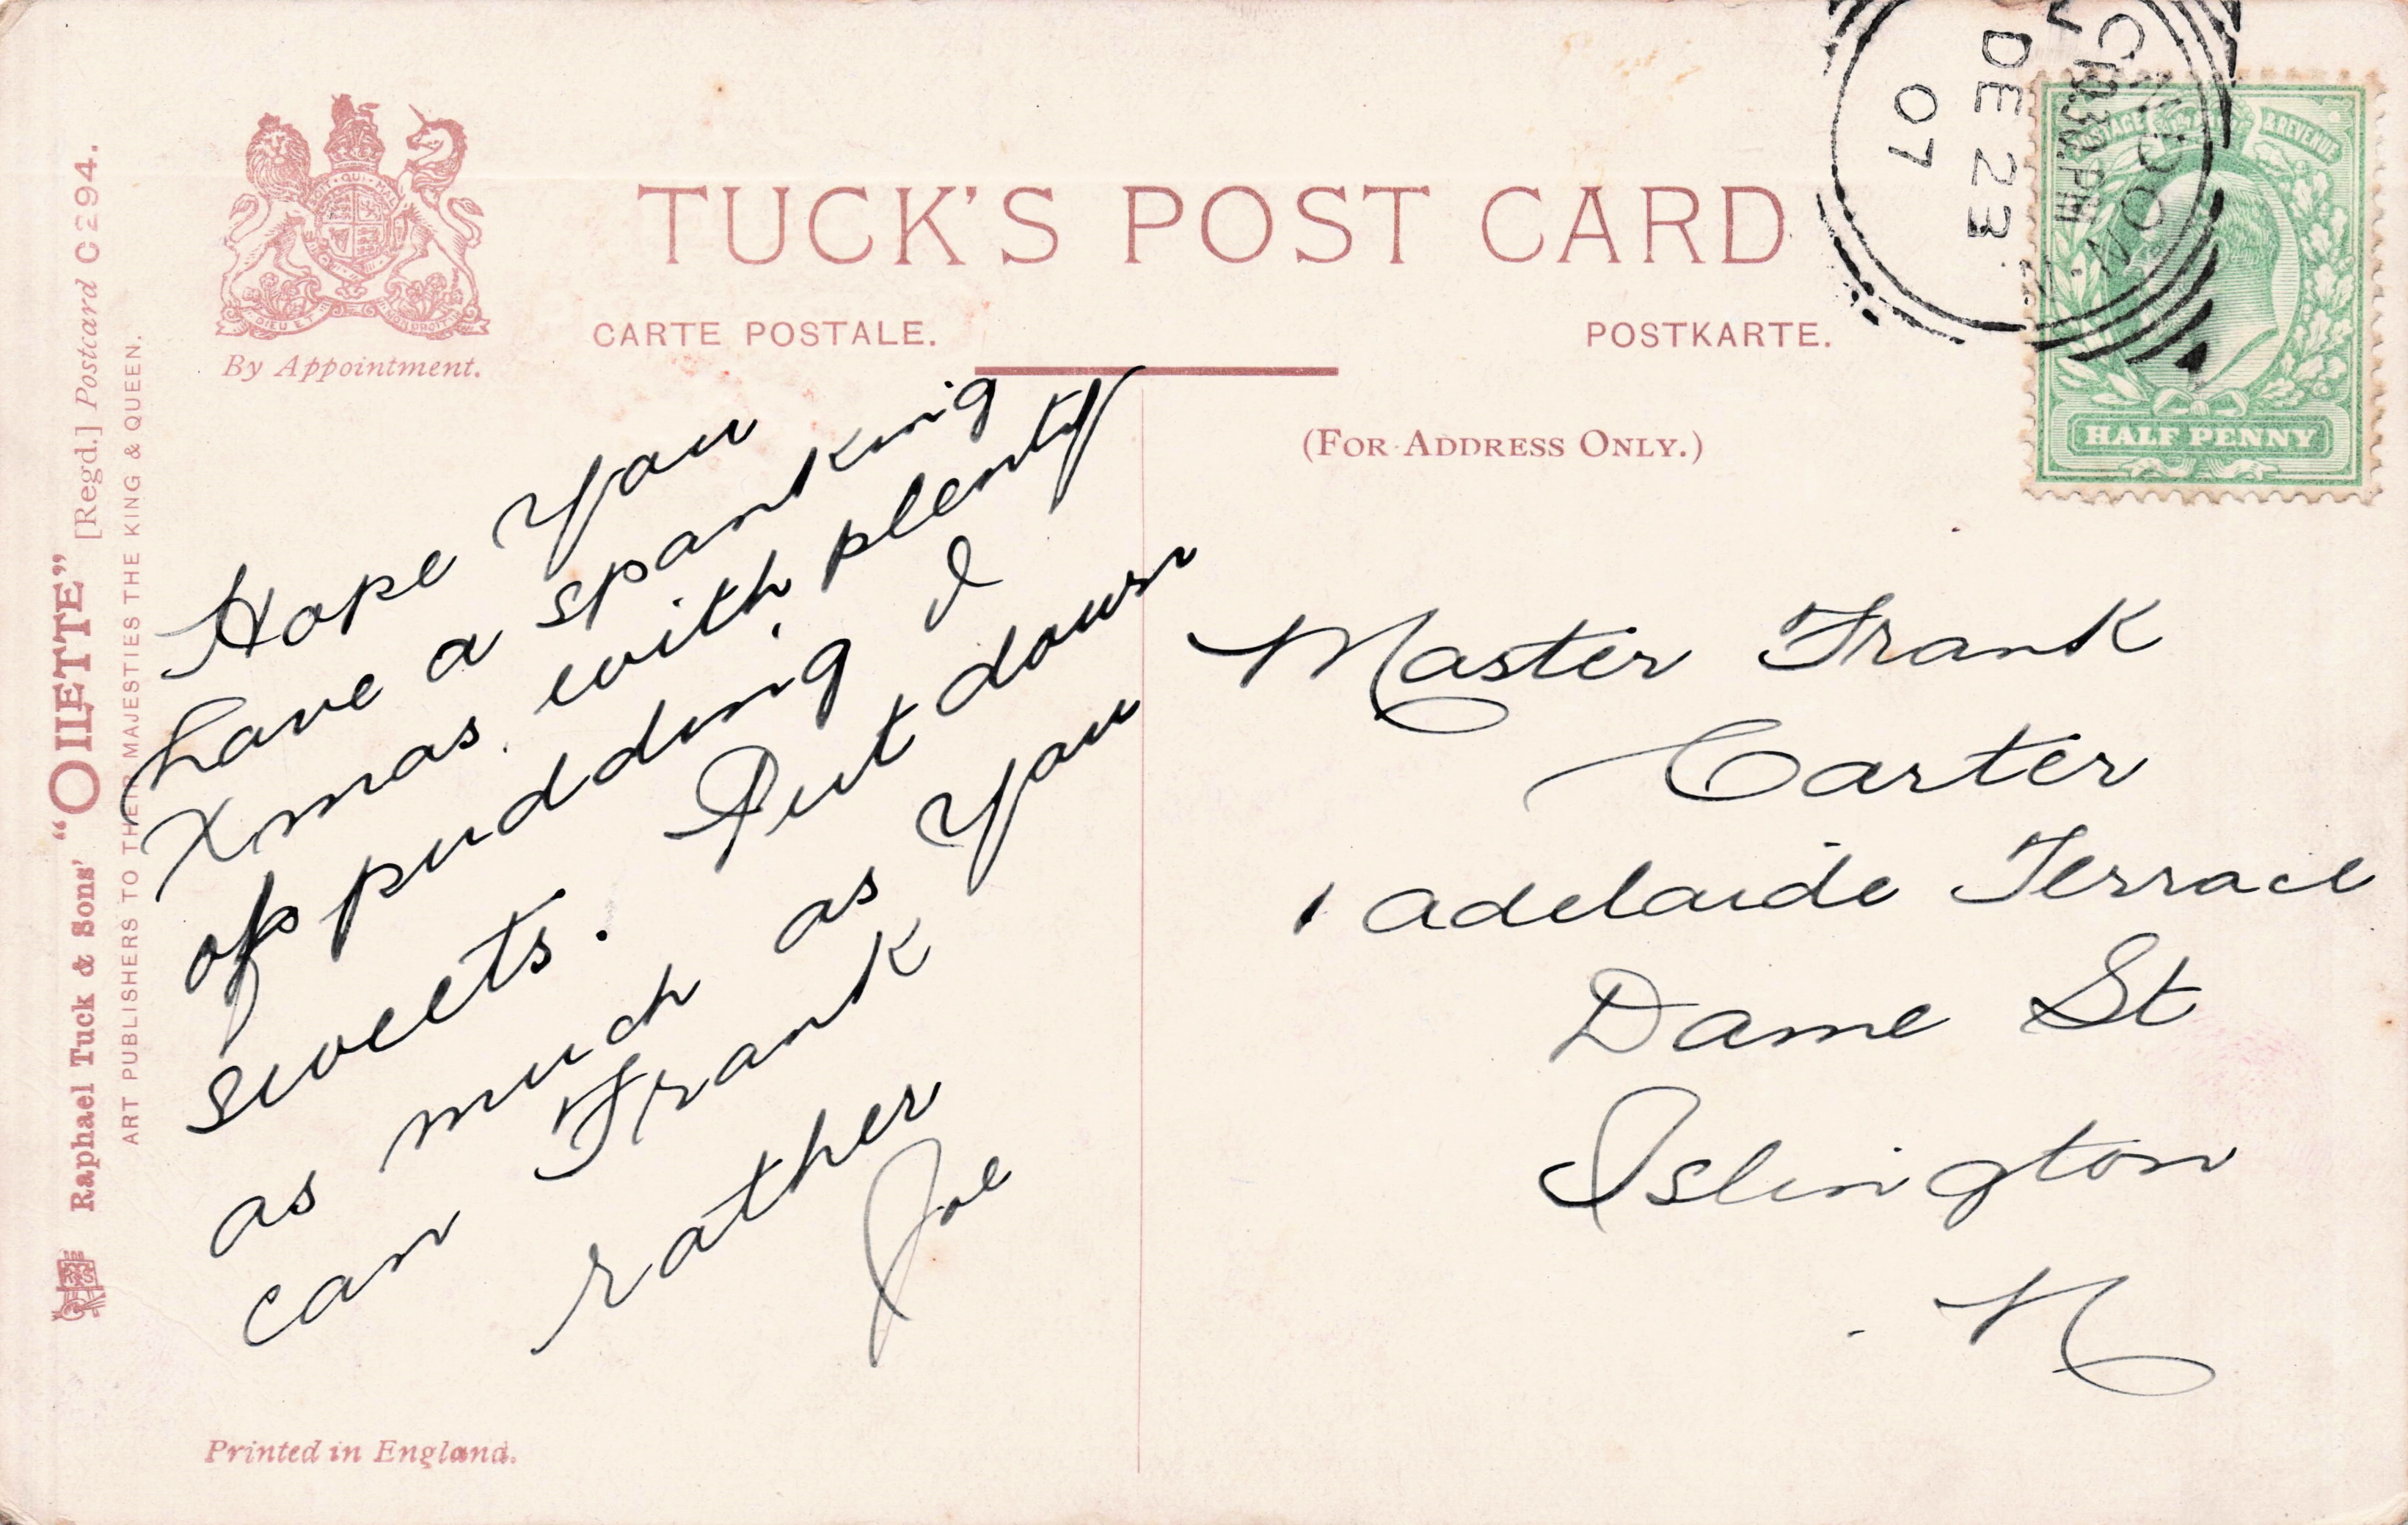 TUCK'S POST CARD
CARTE POSTALE.
POSTKARTE.
By Appointment.
(FOR ADDRESS ONLY.)
Raphael Tuck & Sons' "OILETTE" [Regd.] Postcard C 294.
ART PUBLISHERS TO THEIR MAJESTIES THE KING & QUEEN.
Hope You
have a spanking
Xmas. with plenty
of pudding &
sweets. Put down
as much as You
can Frank
rather
Joe
Printed in England.
LONDON
10.30 PM
DE 23
07
POSTAGE & REVENUE
HALF PENNY
Master Frank
Carter
1 adelaide Terrace
Dame St
Islington
N